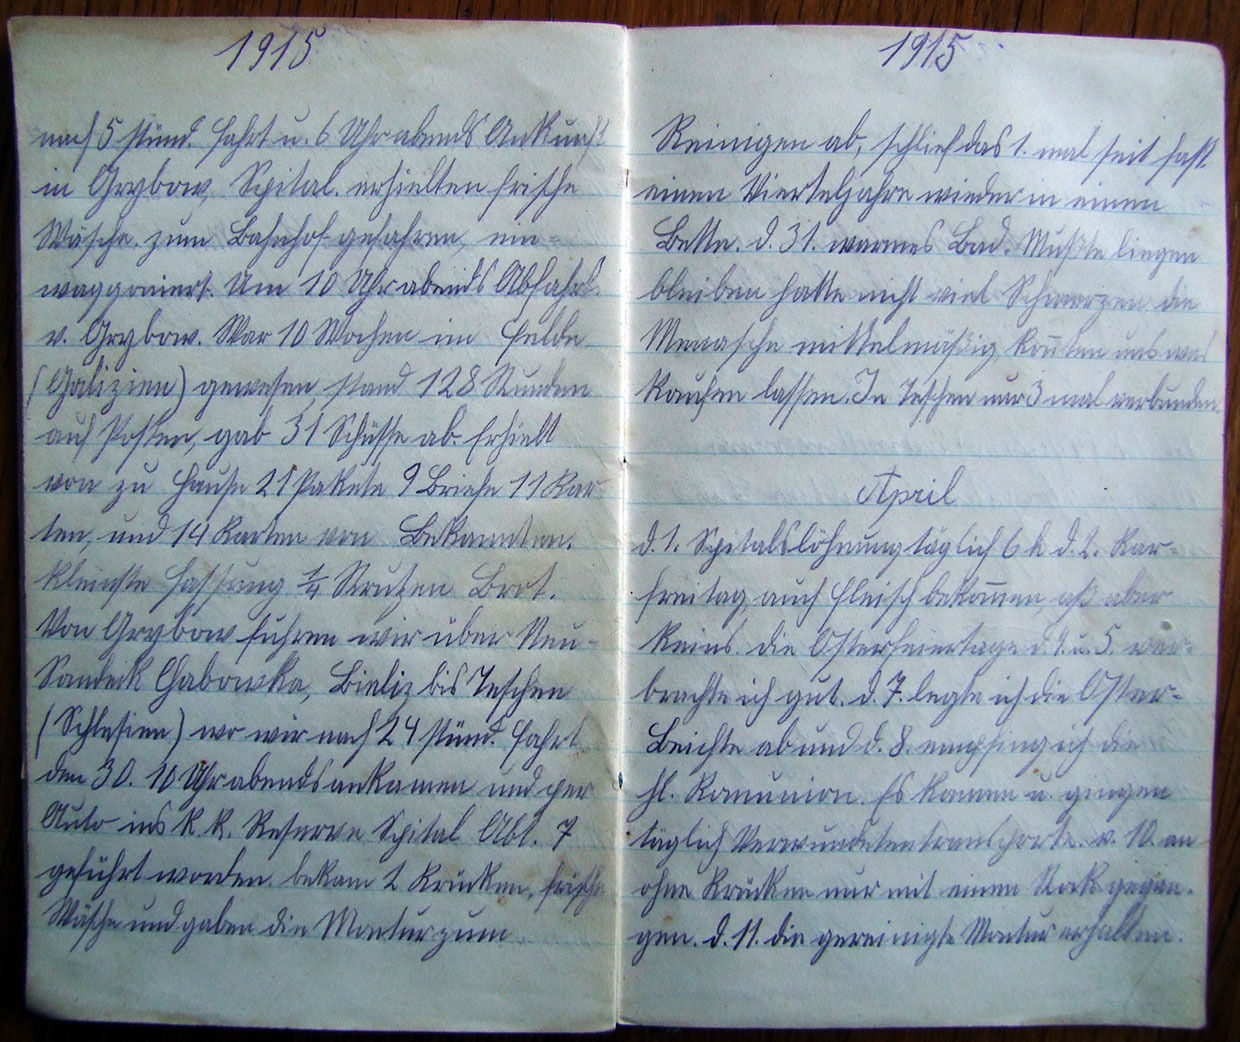 1915
nach 5 stünd. Fahrt u. 6 Uhr abends Ankunft
in Grybow, Spital. erhielten frische
Wäsche. zum Bahnhof gefahren, ein-
waggoniert. Um 10 Uhr abends Abfahrt.
v. Grybow. War 10 Wochen im Felde
(Galizien) gewesen, stand 128 Stunden
auf Posten, gab 31 Schüsse ab. Erhielt
von zu Hause 21 Pakete 9 Briefe 11 Kar-
ten, und 14 Karten von Bekannten.
Kleinste Fassung 1/4 Strutzen Brot.
Von Grybow fuhren wir über Neu-
Sandeck Chabowka, Bieliz bis Teschen
(Schlesien) wo wir nach 24 stünd. Fahrt
den 30. 10 Uhr abends ankamen und per
Auto ins k. k. Reserve Spital Abt. 7
geführt worden bekam 2 Krücken, frische
Wäsche und gaben die Montur zum
1915
Reinigen ab, schlief das 1. mal seit fast
einen Vierteljahre wieder in einen
Bette. d. 31. warmes Bad. Mußte liegen
bleiben hatte nicht viel Schmerzen, die
Menasche mittelmäßig koñten uns was
kaufen lassen. In Teschen nur 3 mal verbunden.
April
d. 1. Spitalslöhnung täglich 6 h d. 2. Kar-
freitag, auch Fleisch bekom̄en, aß aber
keins. die Osterfeiertage d. 4. u. 5. ver-
brachte ich gut. d. 7. legte ich die Oster-
Beichte ab und d. 8. empfing ich die
hl. Komunion. Es kamen u. gingen
täglich Verwundetentransporte. v. 10. an
ohne Krücken nur mit einen Stok gegan-
gen. d. 11. die gereinigte Montur erhalten.